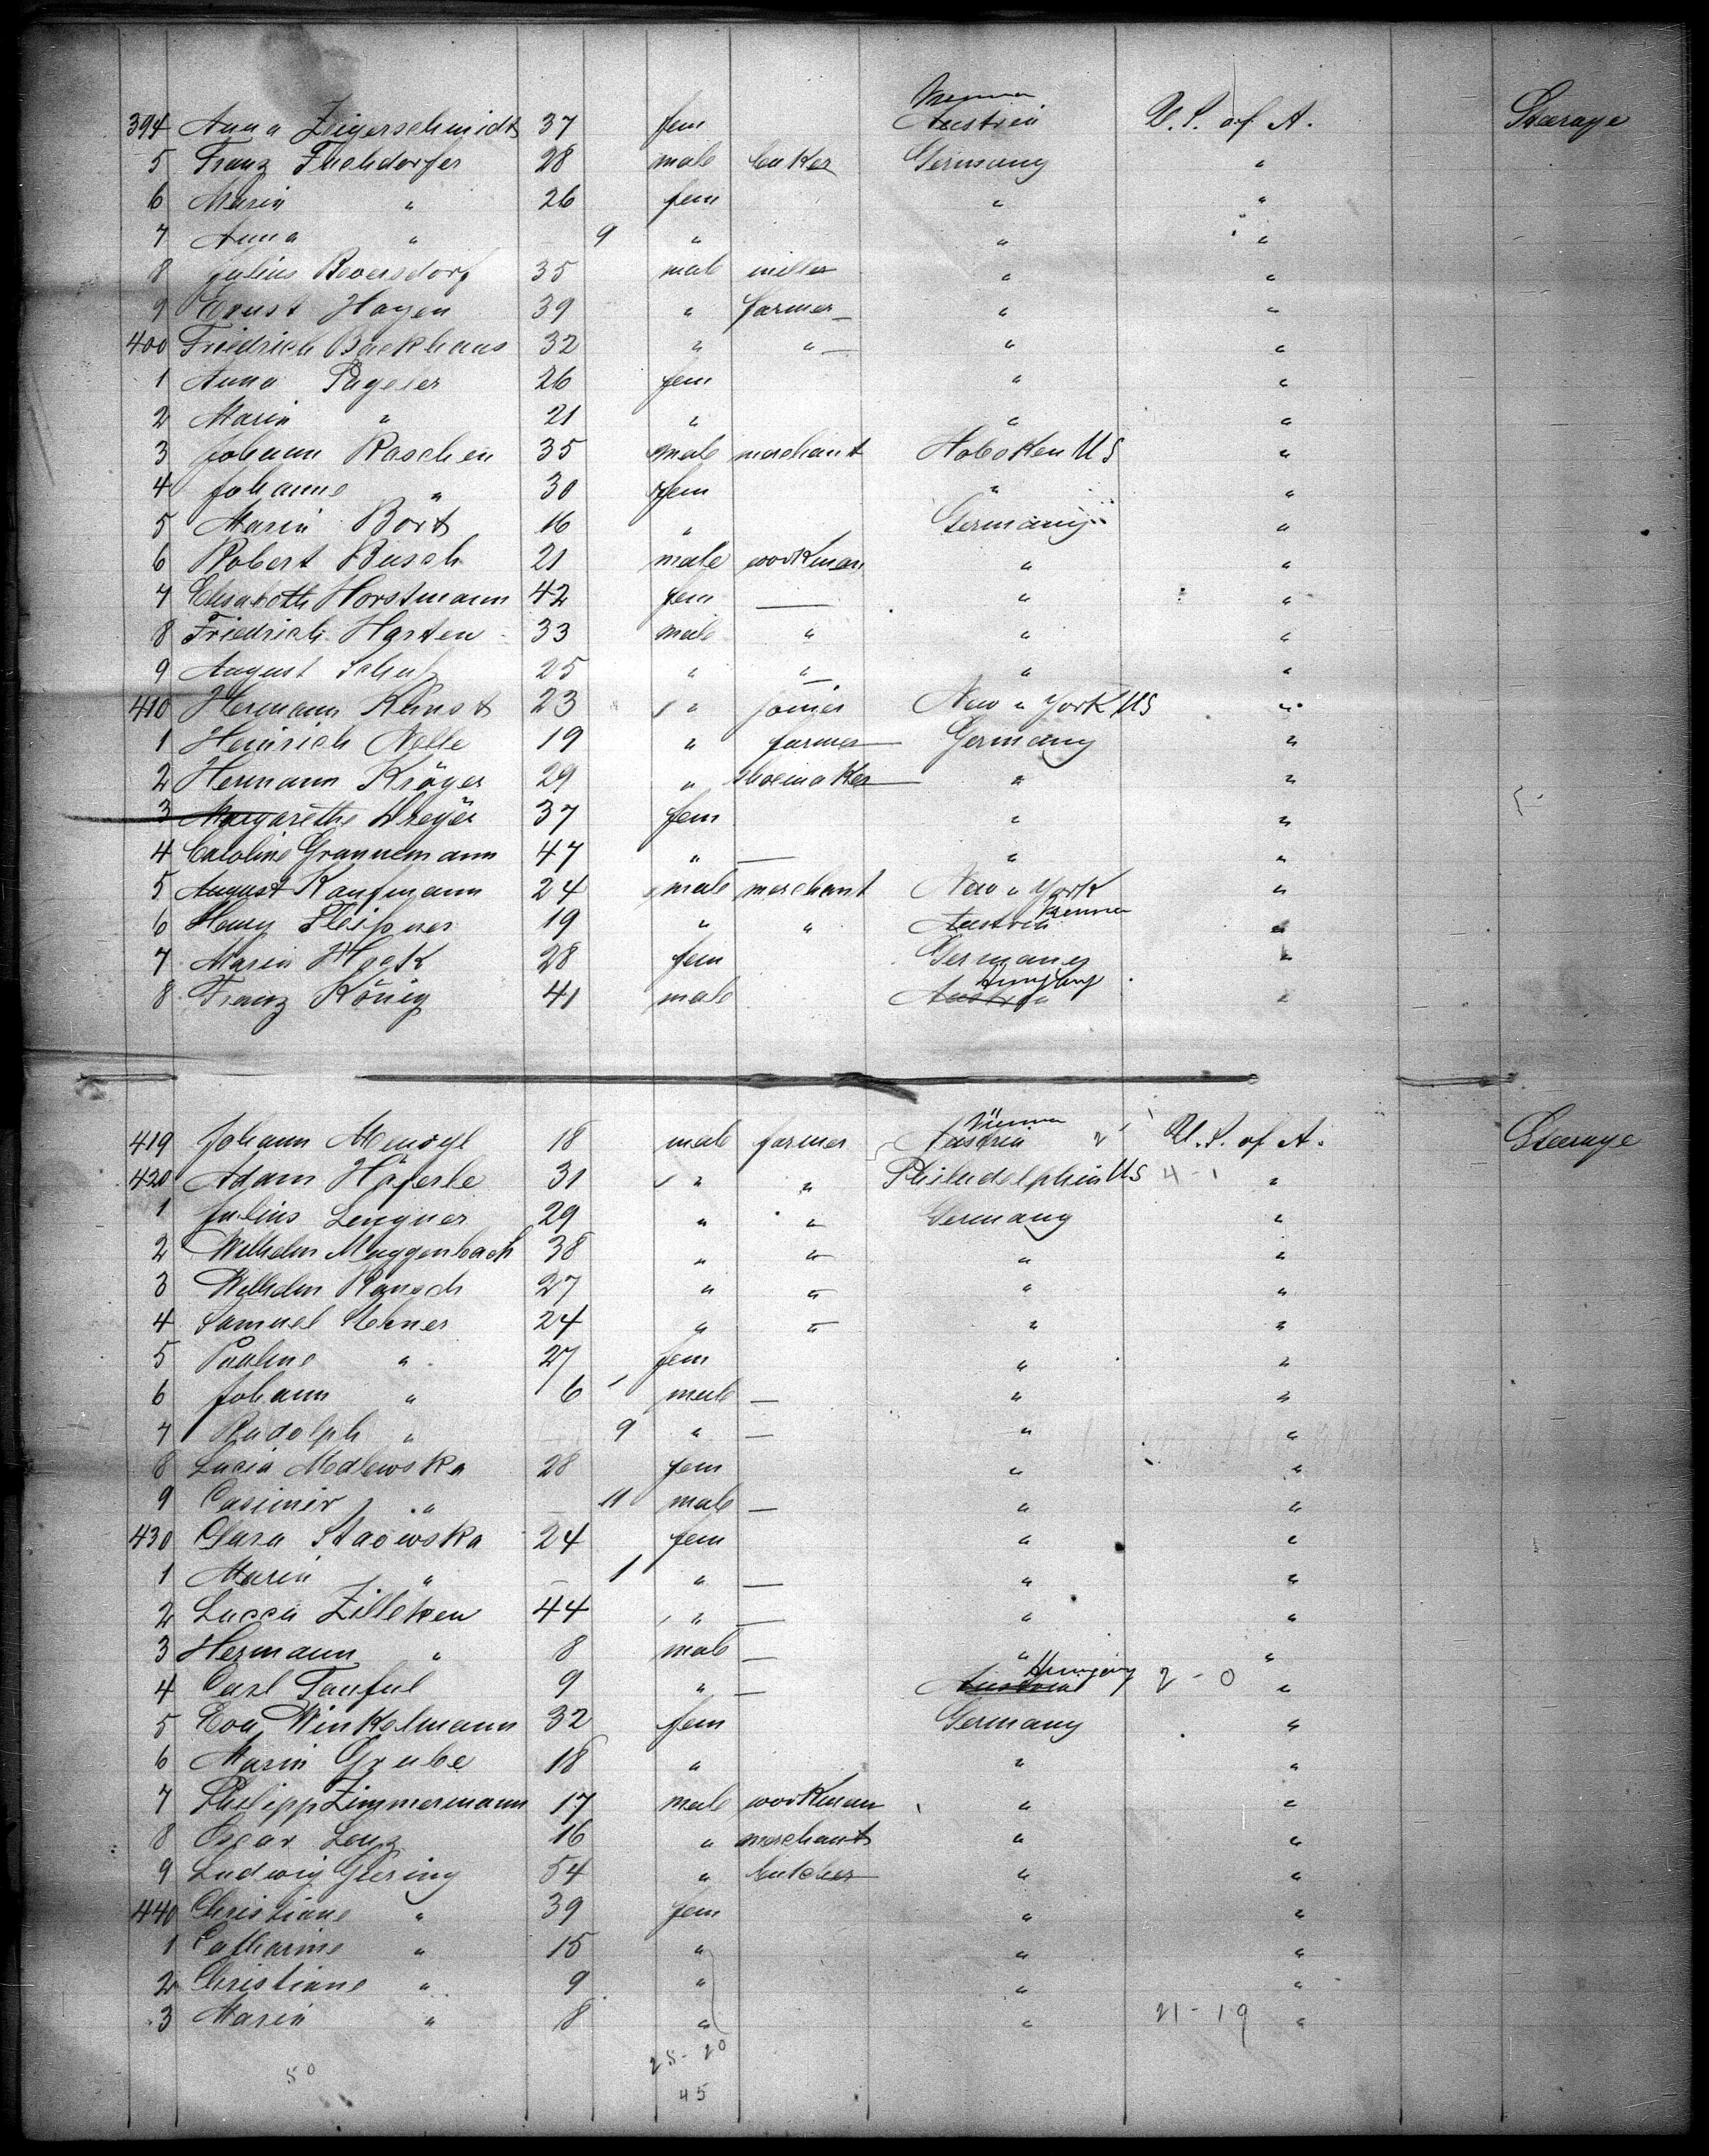 394 Anna Zeigerschmidt 37 fem Vienna Austria U.S. of A. Stearage
5 Franz Fischdorfer 28 male baker Germany "
6 Marie " 26 fem " "
7 Anna " 9 " " "
8 Julius Beversdorf 35 male miller " "
9 Ernst Hagen 39 " farmer " "
400 Friedrich Backhaus 32 " " " "
1 Anna Pageler 26 fem " "
2 Marie " 21 " " "
3 Johann Raschen 35 male merchant Hoboken US "
4 Johanne " 30 fem " "
5 Marie Bort 16 " Germany "
6 Robert Busch 21 male workman " "
7 Elisabeth Horstmann 42 fem — " "
8 Friedrich Harten 33 male " " "
9 August Schulz 25 " " " "
410 Hermann Kunst 23 " joiner New York US "
1 Heinrich Nolle 19 " farmer Germany "
2 Hermann Kröger 29 " shoemaker " "
3 Margarethe Dreyer 37 fem " "
4 Caroline Grannemann 47 " — " "
5 August Kaufmann 24 male merchant New York "
6 Henry 19 " " Austria Vienna "
7 Marie Hack 28 fem Germany "
8 Franz König 41 male Austria Hungary "
419 Johann 18 male farmer Vienna Austria 2 U.S. of A. Stearage
420 Adam Häferle 31 " " Philadelphia US 4-1 "
1 Julius Lengner 29 " " Germany "
2 Wilhelm Muggenbach 38 " " " "
3 Wilhelm Rausch 27 " " " "
4 Samuel 24 " " " "
5 Pauline " 27 fem " "
6 Johann " 6 male — " "
7 Rudolph " 9 " — " "
8 Lucia Medlewska 28 fem " "
9 Casimir " 11 male — " "
430 Clara Stacewska 24 fem " "
1 Marie " 1 " — " "
2 Lucca Zilleken 44 " — " "
3 Hermann " 8 male — " "
4 Carl Tauful 9 " — Austria Hungary 2-0 "
5 Eva Winkelmann 32 fem Germany "
6 Marie Grube 18 " " "
7 Philipp Zimmermann 17 male workman " "
8 Oscar Lenz 16 " merchant " "
9 Ludwig Giering 54 " butcher " "
440 Christiane " 39 fem " "
1 Catharine " 15 " " "
2 Christiane " 9 " " "
3 Marie " 8 " " 21-19 "
50 25-20
45